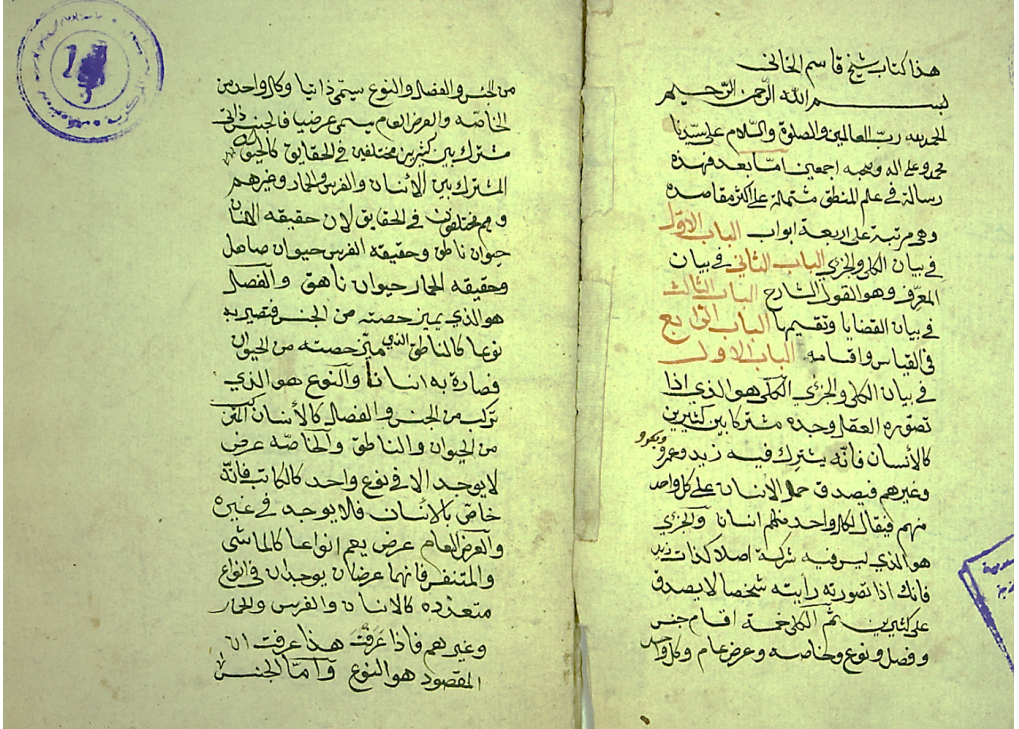 هذا كتاب شيخ قاسم الخانى
بسم الله الرحمن الرحيم
الحمد لله رب العالمين والصلوة والسلام على سيدنا
محمد وعلى اله وصحبه اجمعين امّا بعد فهذه
رسالة فى علم المنطق مشتملة على اكثر مقاصده
وهى مرتبة على اربعة ابواب الباب الاوّل
فى بيان الكلى والجزئى الباب الثانى فى بيان
المعرّف وهو القول الشارح الباب الثالث
فى بيان القضايا وتقسيمها الباب الرّابع
فى القياس واقسامه الباب الاول
فى بيان الكلى والجزئى الكلّى هو الذى اذا
تصوّره العقل وحده مشتركا بين كثيرين
كالأنسان فانّه يشترك فيه زيد وعمرو وبكر
وغيرهم فيصدق حمل الانسان على كل واحد
منهم فيقال لكل واحد منهم انسانا والجزئى
هو الذى ليس فيه شركة اصلا كذات زيد
فانك اذا تصورته رأيته شخصا لا يصدق
على كثيرين ثم الكلى خمسة اقسام جنس
وفصل ونوع وخاصه وعرض عام وكل واحد
من الجنس والفصل والنوع سيتمى ذاتيا وكل واحد من
الخاصّه والعرض العام يسمى عرضيا فالجنس ذاتى
مشترك بين كثيرين مختلفين فى الحقايق كالحيوان
المشترك بين الأنسان والفرس والحمار وغيرهم
وهم مختلفون فى الحقايق لان حقيقه الانسان
حيوان ناطق وحقيقه الفرس حيوان صاهل
وحقيقه الحمار حيوان ناهق والفصل
هو الذى يميز حصته من الجنس فتصير به
نوعا كالناطق الذى ميّز حصته من الحيوان
فصارة به انسانا والنوع هو الذى
تركب من الجنس والفصل كالأنسان المركب
من الحيوان والناطق والخاصّه عرض
لا يوجد الا فى نوع واحد كالكاتب فانّه
خاص بالأنسان فلا يوجد فى غيره
والعرض العام عرض يعم انواعا كالماشى
والمتنفس فانهما عرضان يوجدان فى انواع
متعدّده كالانسان والفرس والحمار
وغيرهم فاذا عَرفتَ هذا عرفت ان
المقصود هو النوع وامّا الجنس